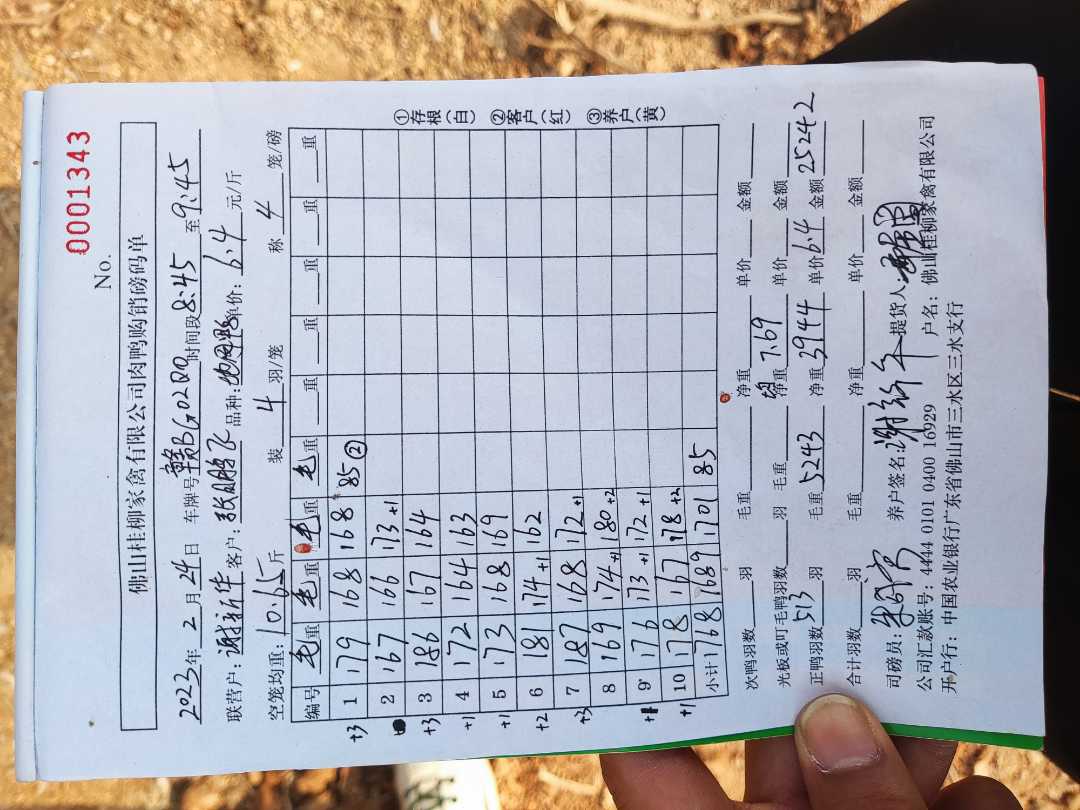 No. 0001343
佛山桂柳家禽有限公司肉鸭购销磅码单
2023年 2 月 24 日 车牌号 赣BG02 时间段 8:45 至 9:45
联营户: 谢新华 客户: 张鹏飞 品种: 单价: 6.4 元/斤
空笼均重: 10.65斤 装 4 羽/笼 称 4 笼/磅
编号 毛重 毛重 毛重 毛重 重 重 重 重 重
+3 1 179 168 168 85②
2 167 166 173+1
+3 3 186 167 164
+1 4 172 164 163
+1 5 173 168 169
+2 6 181 174+1 162
+3 7 187 168 172+1
8 169 174+1 180+2
+1 9 176 173+1 172+1
+1 10 178 167 178+2
小计 1768 1689 1701 85
①存根(白) ②客户(红) ③养户(黄)
次鸭羽数 羽 毛重 净重 单价 金额
光板或叮毛鸭羽数 羽 毛重 净重 7.69 单价 金额
正鸭羽数 513 羽 毛重 5243 净重 3944 单价 6.4 金额 25242
合计羽数 羽 毛重 净重 单价 金额
司磅员: 养户签名: 谢新华 提货人:
公司汇款账号: 4444 0101 0400 16929 户名: 佛山桂柳家禽有限公司
开户行: 中国农业银行广东省佛山市三水区三水支行